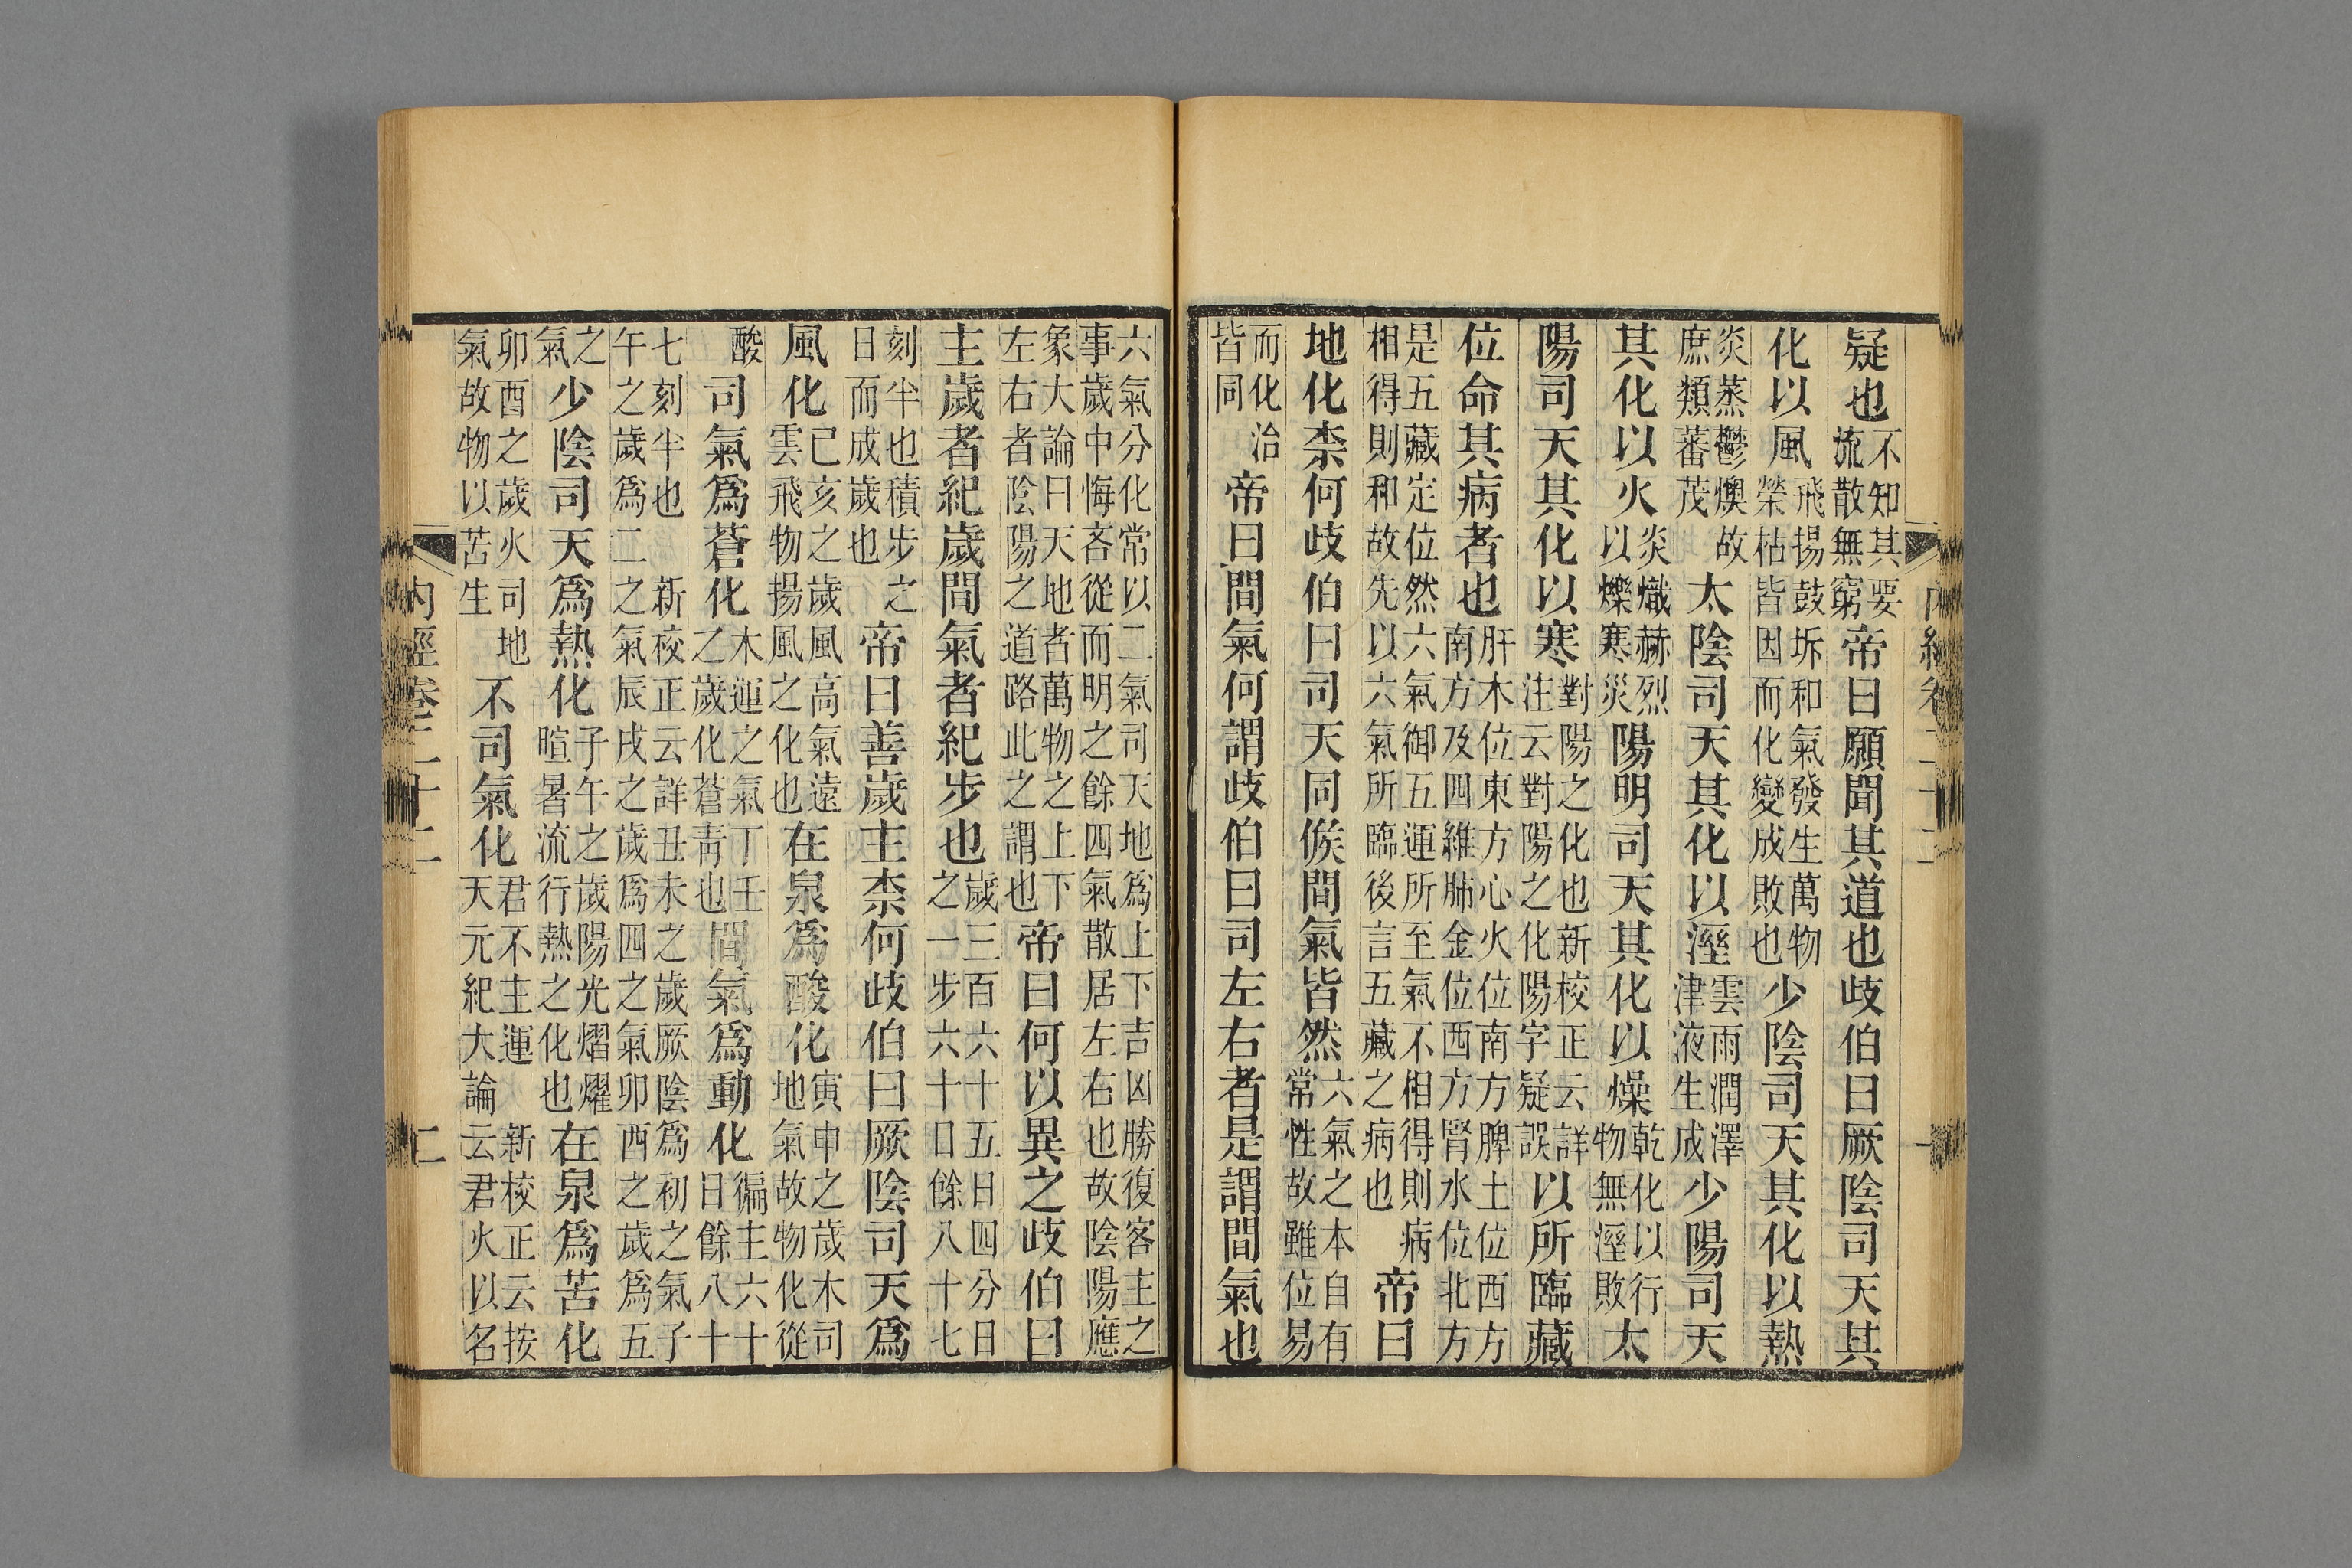 疑也不知其要流散無窮帝曰願聞其道也歧伯曰厥陰司天其
化以風飛揚鼓坼和氣發生萬物榮枯皆因而化變成敗也少陰司天其化以熱
炎蒸鬱燠故庶類蕃茂太陰司天其化以溼雲雨潤澤津液生成少陽司天
其化以火炎熾赫烈以爍寒災陽明司天其化以燥乾化以行物無溼敗太
陽司天其化以寒對陽之化也新校正云詳注云對陽之化陽字疑誤以所臨藏
位命其病者也肝木位東方心火位南方脾土位西方南方及四維肺金位西方腎水位北方
是五藏定位然六氣御五運所至氣不相得則病相得則和故先以六氣所臨後言五藏之病也帝曰
地化柰何歧伯曰司天同候間氣皆然六氣之本自有常性故雖位易
而化治皆同帝曰間氣何謂歧伯曰司左右者是謂間氣也
六氣分化常以二氣司天地爲上下吉凶勝復客主之事歲中悔吝從而明之餘四氣散居左右也故陰陽應
象大論曰天地者萬物之上下左右者陰陽之道路此之謂也帝曰何以異之歧伯曰
主歲者紀歲間氣者紀步也歲三百六十五日四分日之一步六十日餘八十七
刻半也積步之日而成歲也帝曰善歲主柰何歧伯曰厥陰司天爲
風化己亥之歲風高氣遠雲飛物揚風之化也在泉爲酸化寅申之歲木司地氣故物化從
酸司氣爲蒼化木運之氣丁壬之歲化蒼青也間氣爲動化徧主六十日餘八十
七刻半也 新校正云詳丑未之歲厥陰爲初之氣子午之歲爲二之氣辰戌之歲爲四之氣卯酉之歲爲五
之氣少陰司天爲熱化子午之歲陽光熠燿暄暑流行熱之化也在泉爲苦化
卯酉之歲火司地氣故物以苦生不司氣化君不主運 新校正云按天元紀大論云君火以名
內經卷二十二 二